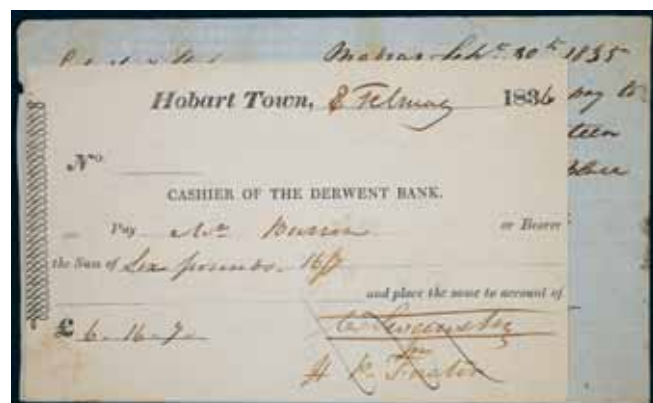 Madras Sepr. 30th 1835
Hobart Town, 8 Febuary 1836
pay to
teen
No.
CASHIER OF THE DERWENT BANK.
Pay Mr or Bearer
the Sum of Six pounds. 16/7
and place the same to account of
£ 6-16-7